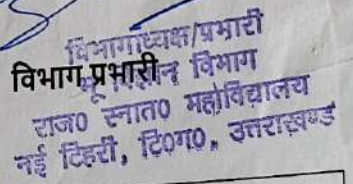 विभागाध्यक्ष/प्रभारी
विभाग प्रभारी
भू विज्ञान विभाग
राज0 स्नात0 महाविद्यालय
नई टिहरी, टि0ग0, उत्तराखण्ड